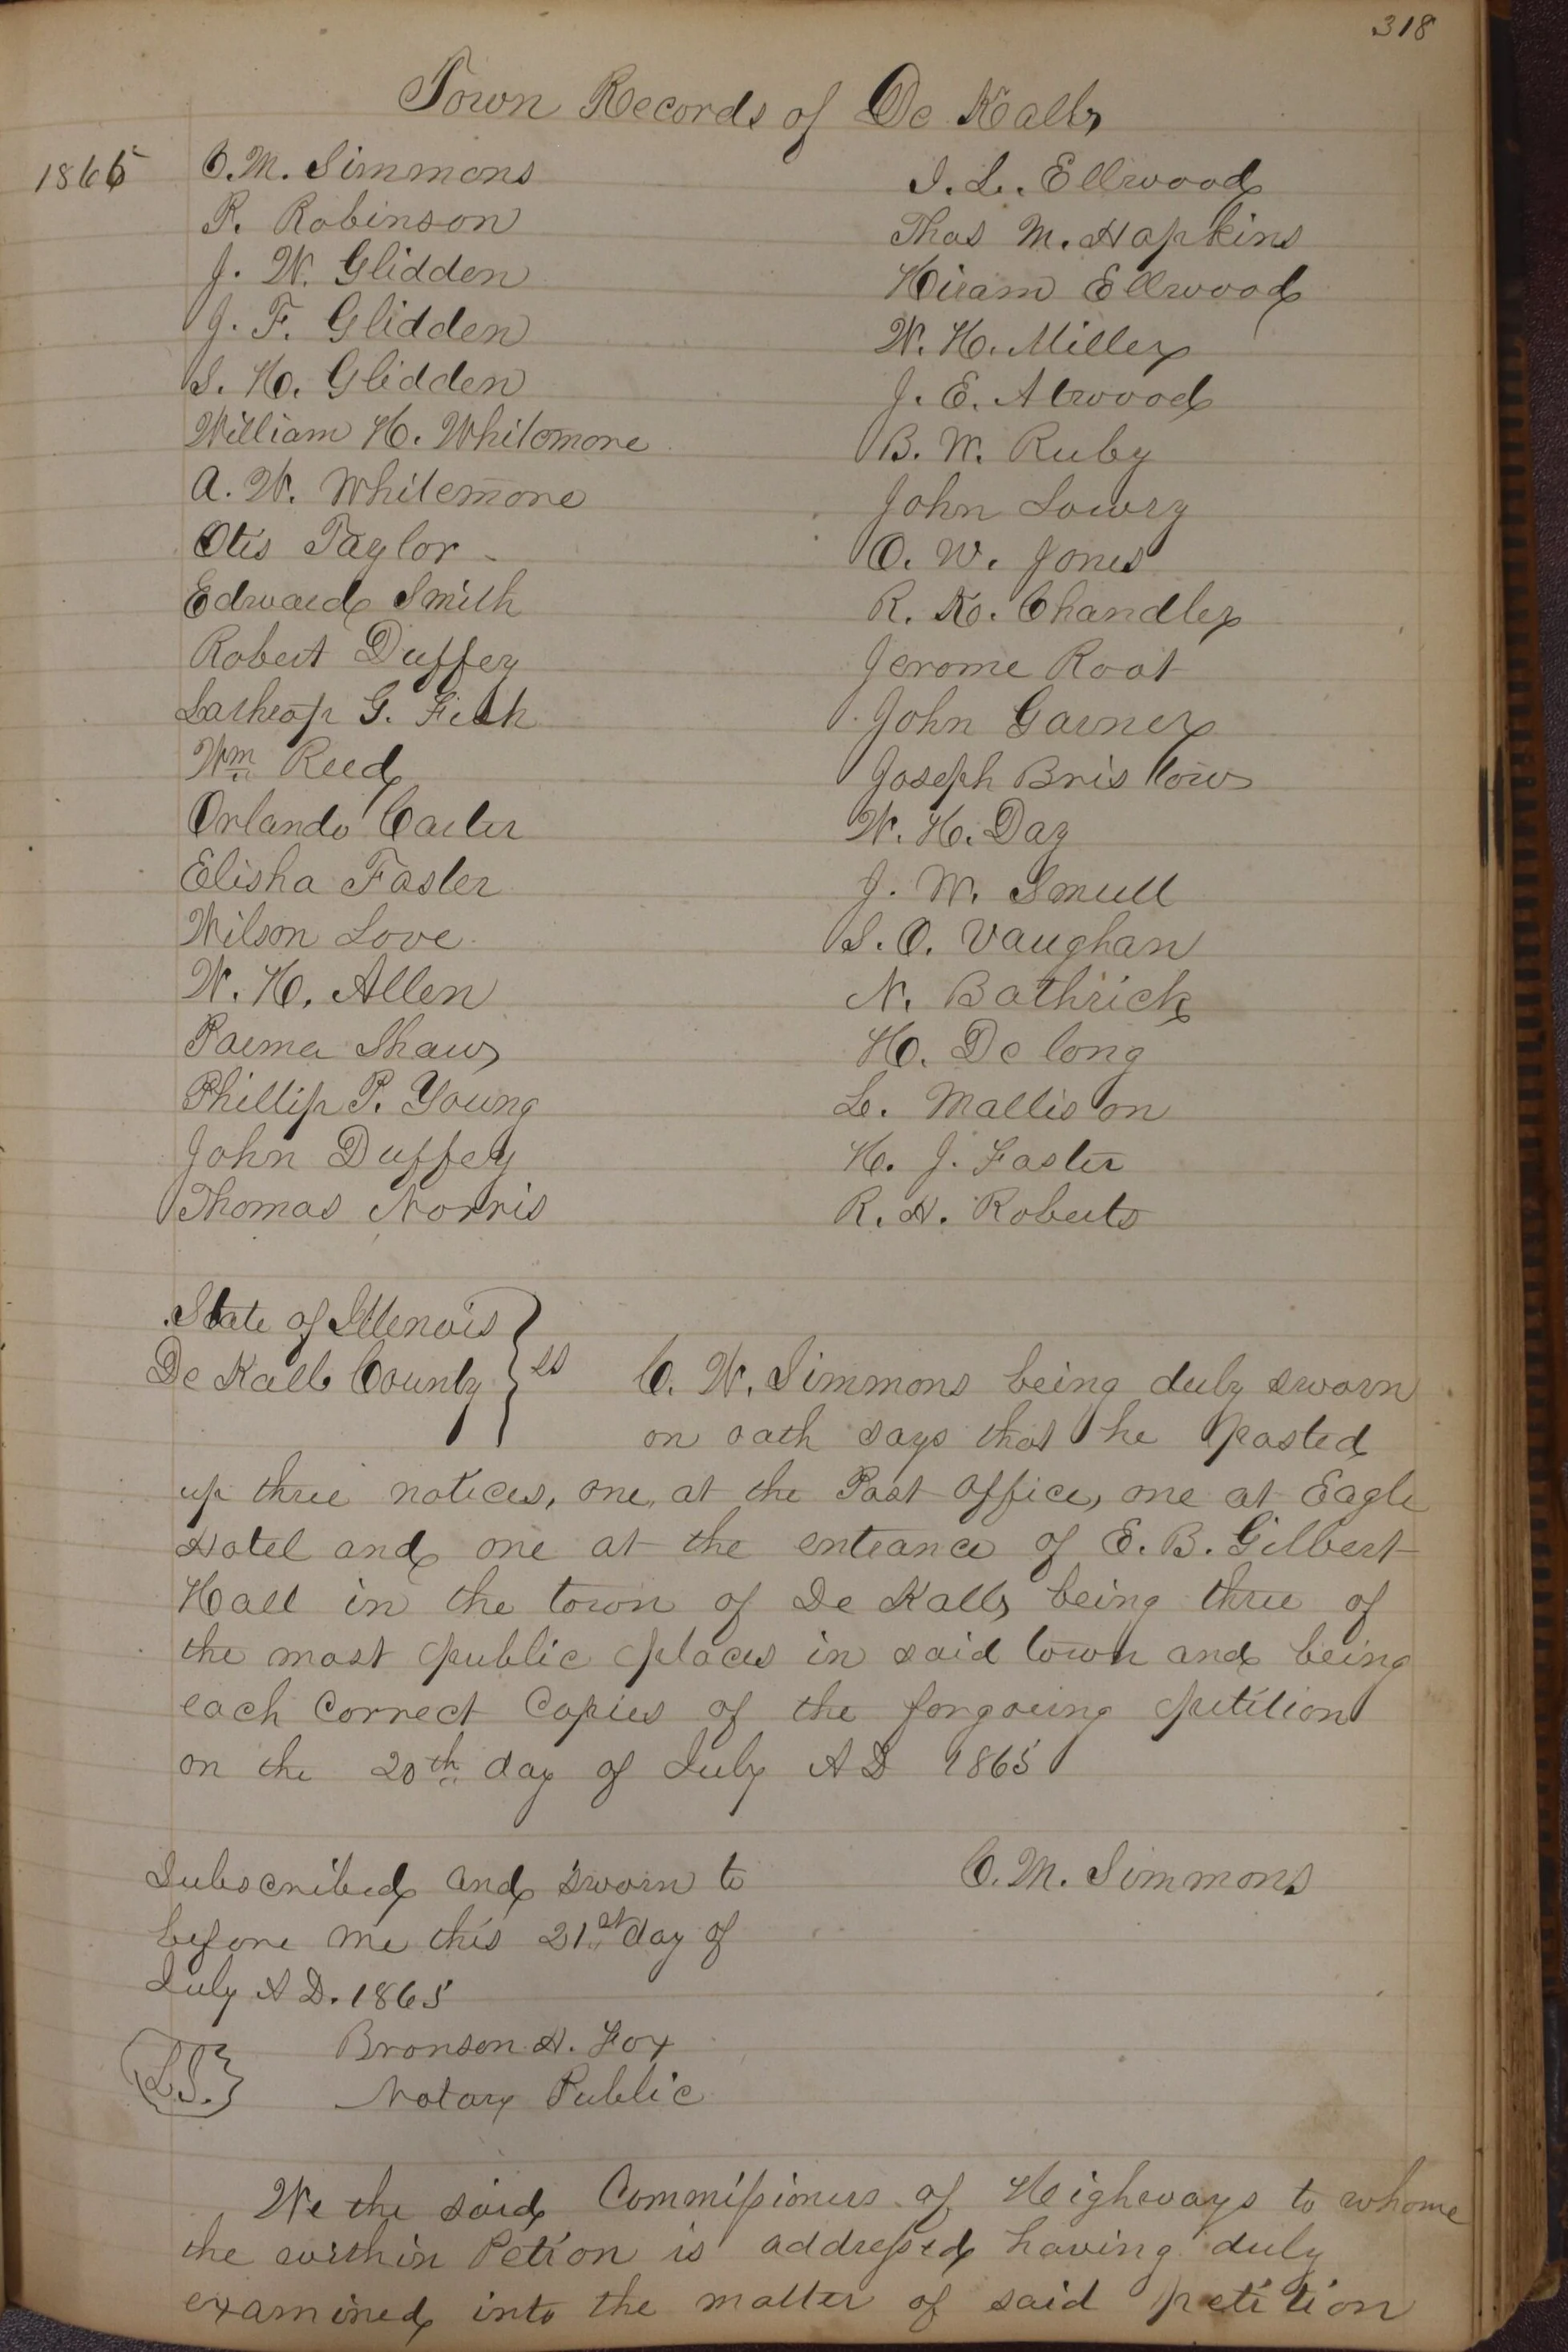 318
Town Records of De Kalb
1865
C. M. Simmons
P. Robinson
J. W. Glidden
J. F. Glidden
S. H. Glidden
William H. Whitemore
A. W. Whitemore
Otis Taylor
Edward Smith
Robert Duffey
Lathrop G. Fish
Wm Reed
Orlando Carter
Elisha Foster
Wilson Love
W. H. Allen
Parma Shaw
Phillip P. Young
John Duffey
Thomas Norris
I. L. Ellwood
Thos M. Hopkins
Hiram Ellwood
W. H. Miller
J. E. Atwood
B. W. Ruby
John Lowry
O. W. Jones
R. K. Chandler
Jerome Root
John Garner
Joseph Bristow
W. H. Day
J. W. Smull
S. O. Vaughan
N. Bathrick
H. De long
L. Mallison
H. J. Foster
R. H. Roberts
State of Illenois
De Kalb County } ss C. W. Simmons being duly sworn
on oath says that he posted
up three notices, one, at the Post office, one at Eagle
Hotel and one at the entrance of E. B. Gilbert
Hall in the town of De Kalb being three of
the most public places in said town and being
each Correct Copies of the forgoeing petition
on the 20th day of July A D 1865
Subscribed and sworn to
before me this 21st day of
July A D. 1865
C. M. Simmons
Bronson H. Fox
(L.S.) Notary Public
We the said Commissioners of Highways to whome
the within Petion is addressed having duly
examined into the matter of said petition